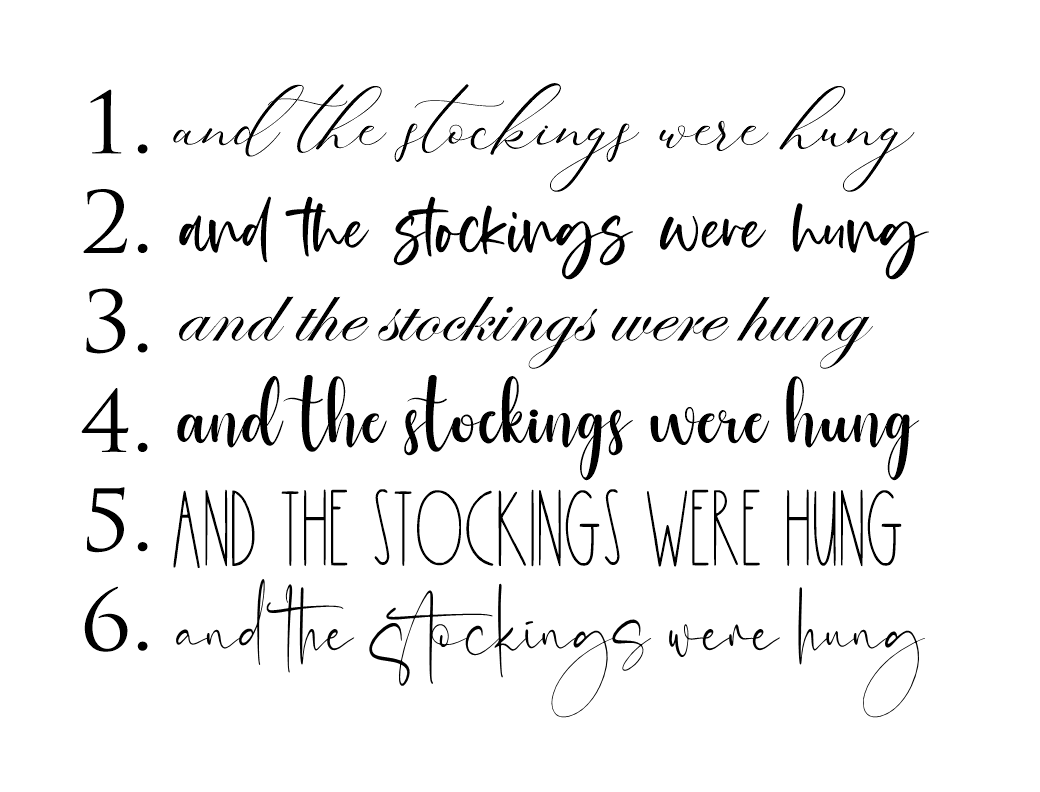 1. and the stockings were hung
2. and the stockings were hung
3. and the stockings were hung
4. and the stockings were hung
5. AND THE STOCKINGS WERE HUNG
6. and the stockings were hung